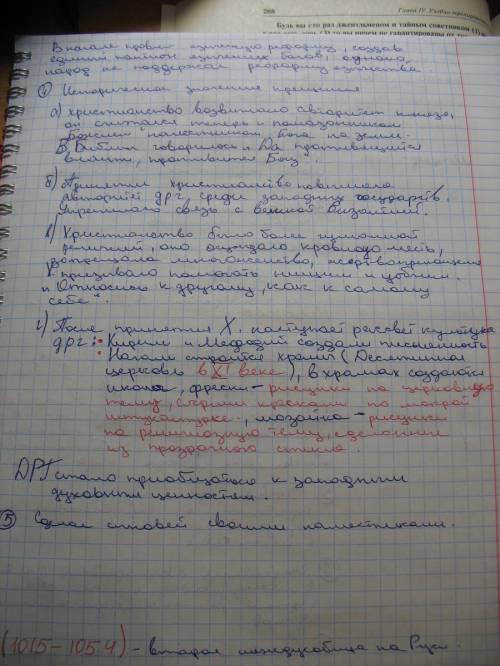 268 Глава IV.
Будь вы сто раз джентльменом и тайным советником
В начале провёл языческую реформу, создав
единый пантеон языческих богов, однако
народ не поддержал реформу язычества.
④ Историческое значение крещения
а) христианство возвышало авторитет князя,
он считался теперь и помазанником
Божьим наместником Бога на земле.
В Библии говорилось „Да противящийся
власти, противится Богу".
б) Принятие христианства повышало
авторитет ДРГ среди западных государств.
Укрепляло связь с Византией.
в) Христианство было более гуманной
религией, оно осуждало кровную месть,
запрещала многоженство, жертвоприношение
призывало помогать нищим и убогим.
„Относись к другому, как к самому
себе".
г) После принятия Х. наступает рассвет культуры
ДРГ: • Кирилл и Мефодий создали письменность
• Начали строится храмы (Десятинная
церковь в XI веке), в храмах создаются
иконы, фрески – рисунки на церковную
тему, красками по мокрой
штукатурке, мозаика – рисунки
на религиозную тему, сделанные
из прозрачного стекла.
ДРГ стало приобщаться к западным
духовным ценностям.
⑤ Сделал сыновей своими наместниками.
(1015–1054) – вторая междоусобица на Руси